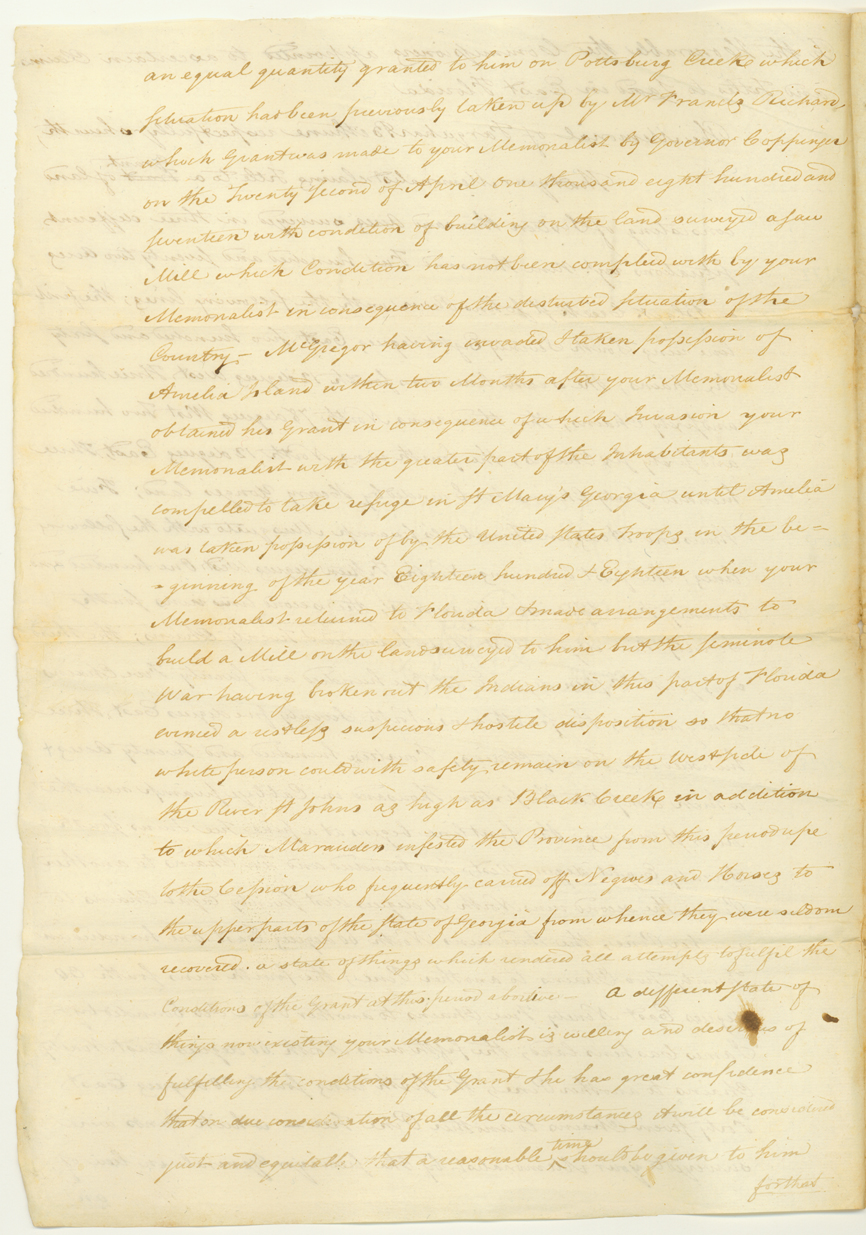 an equal quantity granted to him on Pottsburg Creek which
situation had been previously taken up by Mr Francis Richard
which Grant was made to your Memorialist by Governor Coppinger
on the Twenty second of April One thousand eight hundred and
seventeen with condition of building on the land surveyd a saw
Mill which Condition has not been complied with by your
Memorialist in consequence of the disturbed situation of the
Country – McGregor having invaded & taken possession of
Amelia Island within two Months after your Memorialist
obtained his Grant in consequence of which Invasion your
Memorialist with the greater part of the Inhabitants was
compelled to take refuge in St Mary's Georgia until Amelia
was taken possession of by the United States Troops in the be=
=ginning of the year Eighteen hundred & Eighteen when your
Memorialist returned to Florida & made arrangements to
build a Mill on the land surveyed to him but the seminole
War having broken out the Indians in this part of Florida
evinced a restless suspicious & hostile disposition so that no
white person could with safety remain on the West side of
the River St Johns as high as Black Creek in addition
to which Marauders infested the Province from this period upe
to the Cession who frequently carried off Negroes and Horses to
the upper parts of the State of Georgia from whence they were seldom
recovered. a state of things which rendered all attempts to fulfil the
Conditions of the Grant at this period abortive – A different state of
things now existing your Memorialist is willing and desirous of
fulfilling the conditions of the Grant & he has great confidence
that on due consideration of all the circumstances it will be considered
just and equitable that a reasonable time should be given to him
for that